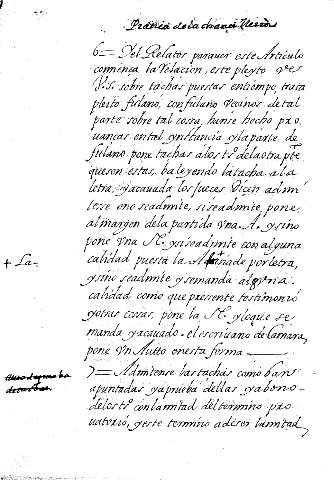 Practica de la chancilleria
6 = Del Relator para ver este Articulo
comiença la Relacion, este pleyto Ves
V.S. sobre tachas puestas en tiempo, trata
pleito fulano, con fulano Vecinos de tal
parte sobre tal cosa, hanse hecho pro
uanças en tal ynstancia y la parte de
fulano pone tachas a los t.os de la otra p.te
que son estas, ba leyendo la tacha a la
letra, y acauada los Jueces dicen admi
tese o no se admite, si se admite, pone
al margen de la partida vna A. y si no
pone vna N. y si se admite con alguna
+ La - calidad puesta la Añade por letra,
y si no se admite y se manda alguna
calidad como que presente testimonio
y otras cosas, pone la N. y lo que se
manda y acauado el escriuano de Camara
pone vn Autto en esta forma
Auto de prueba
de tachas
7 = Admitense las tachas como ban
apuntadas y a prueba dellas y abono
de los t.os con la mitad del termino pro
uatorio, y este termino a de ser la mitad